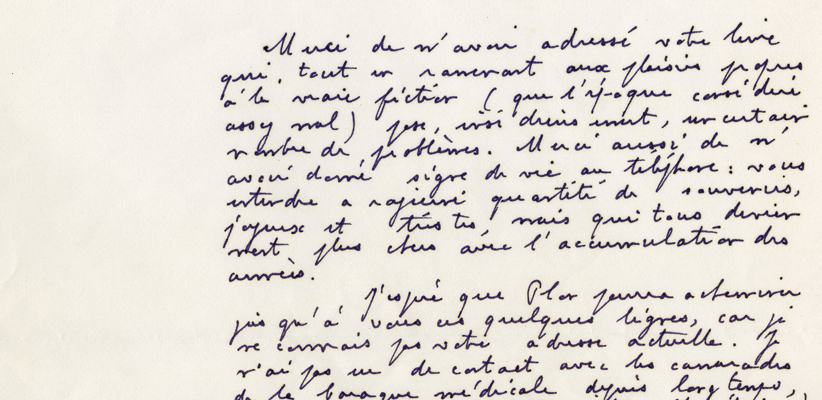 Merci de m'avoir adressé votre livre
qui, tout en ramenant aux plaisirs propres
à la vraie fiction (que l'époque considère
assez mal) pose, insidieusement, un certain
nombre de problèmes. Merci aussi de m'
avoir donné signe de vie au téléphone : vous
entendre a rajeuni quantité de souvenirs,
joyeux et tristes, mais qui tous devien
nent plus chers avec l'accumulation des
années.
J'espère que Plon pourra acheminer
jusqu'à vous ces quelques lignes, car je
ne connais pas votre adresse actuelle. Je
n'ai pas eu de contact avec les camarades
de la baraque médicale depuis longtemps,